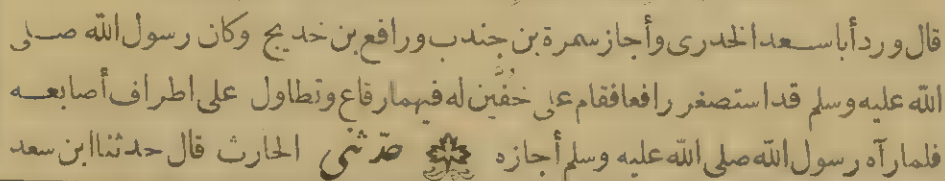 قال ورد أبا سعد الخدرى وأجاز سمرة بن جندب ورافع بن خديج وكان رسول الله صلى
الله عليه وسلم قد استصغر رافعا فقام على خُفَّين له فيهما رقاع وتطاول على اطراف أصابعه
فلما رآه رسول الله صلى الله عليه وسلم أجازه حدثنى الحارث قال حدثنا ابن سعد